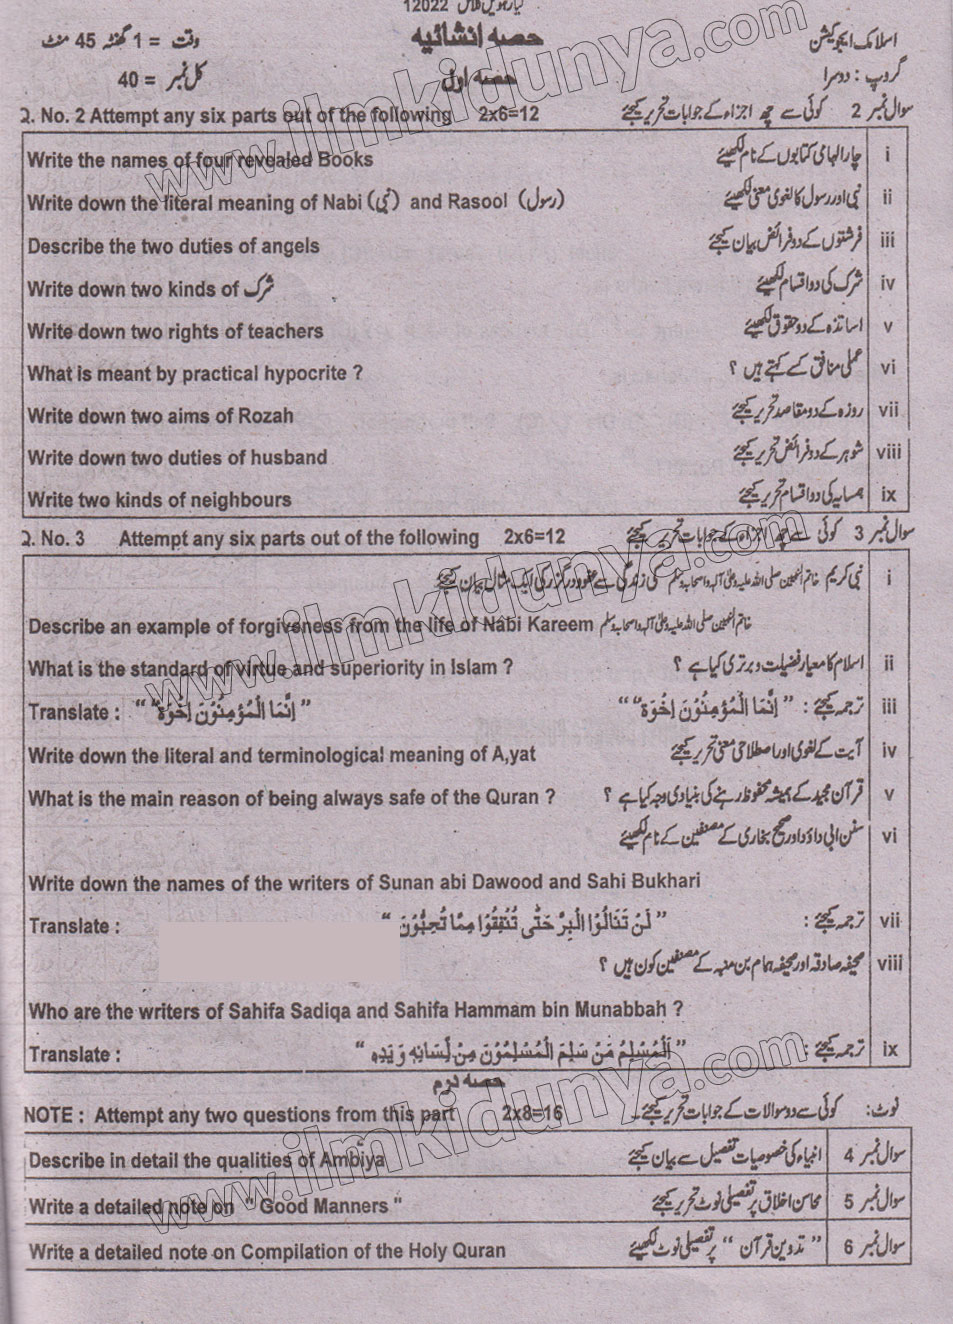 گیارہویں کلاس 12022
اسلامک ایجوکیشن حصہ انشائیہ وقت = 1 گھنٹہ 45 منٹ
گروپ : دوسرا حصہ اول کل نمبر = 40
Q. No. 2 Attempt any six parts out of the following 2x6=12 سوال نمبر 2 کوئی سے چھ اجزاء کے جوابات تحریر کیجئے
Write the names of four revealed Books چار الہامی کتابوں کے نام لکھیئے i
Write down the literal meaning of Nabi (نبی) and Rasool (رسول) نبی اور رسول کا لغوی معنی لکھیئے ii
Describe the two duties of angels فرشتوں کے دو فرائض بیان کیجئے iii
Write down two kinds of شرک شرک کی دو اقسام لکھیئے iv
Write down two rights of teachers اساتذہ کے دو حقوق لکھیئے v
What is meant by practical hypocrite ? عملی منافق کسے کہتے ہیں ؟ vi
Write down two aims of Rozah روزہ کے دو مقاصد تحریر کیجئے vii
Write down two duties of husband شوہر کے دو فرائض تحریر کیجئے viii
Write two kinds of neighbours ہمسایہ کی دو اقسام تحریر کیجئے ix
Q. No. 3 Attempt any six parts out of the following 2x6=12 سوال نمبر 3 کوئی سے چھ اجزاء کے جوابات تحریر کیجئے
نبی کریم خاتم النبیین صلی اللہ علیہ وعلیٰ آلہ واصحابہ وسلم کی زندگی سے عفو و درگزر کی ایک مثال بیان کیجئے i
Describe an example of forgiveness from the life of Nabi Kareem خاتم النبیین صلی اللہ علیہ وعلیٰ آلہ واصحابہ وسلم
What is the standard of virtue and superiority in Islam ? اسلام کا معیار فضیلت و برتری کیا ہے ؟ ii
Translate : " اِنَّمَا الْمُؤْمِنُوْنَ اِخْوَةٌ " ترجمہ کیجئے : " اِنَّمَا الْمُؤْمِنُوْنَ اِخْوَةٌ " iii
Write down the literal and terminological meaning of A,yat آیت کے لغوی اور اصطلاحی معنی تحریر کیجئے iv
What is the main reason of being always safe of the Quran ? قرآن مجید کے ہمیشہ محفوظ رہنے کی بنیادی وجہ کیا ہے ؟ v
سنن ابی داؤد اور صحیح بخاری کے مصنفین کے نام لکھیئے vi
Write down the names of the writers of Sunan abi Dawood and Sahi Bukhari
Translate : " لَنْ تَنَالُوا الْبِرَّ حَتّٰى تُنْفِقُوْا مِمَّا تُحِبُّوْنَ " ترجمہ کیجئے : vii
صحیفہ صادقہ اور صحیفہ ہمام بن منبہ کے مصنفین کون ہیں ؟ viii
Who are the writers of Sahifa Sadiqa and Sahifa Hammam bin Munabbah ?
Translate : " اَلْمُسْلِمُ مَنْ سَلِمَ الْمُسْلِمُوْنَ مِنْ لِّسَانِهٖ وَ يَدِهٖ " ترجمہ کیجئے : ix
حصہ دوم
NOTE : Attempt any two questions from this part 2x8=16 نوٹ: کوئی سے دو سوالات کے جوابات تحریر کیجئے۔
Describe in detail the qualities of Ambiya انبیاء کی خصوصیات تفصیل سے بیان کیجئے سوال نمبر 4
Write a detailed note on " Good Manners " محاسن اخلاق پر تفصیلی نوٹ تحریر کیجئے سوال نمبر 5
Write a detailed note on Compilation of the Holy Quran " تدوین قرآن " پر تفصیلی نوٹ لکھیئے سوال نمبر 6
www.ilmkidunya.com
www.ilmkidunya.com
www.ilmkidunya.com